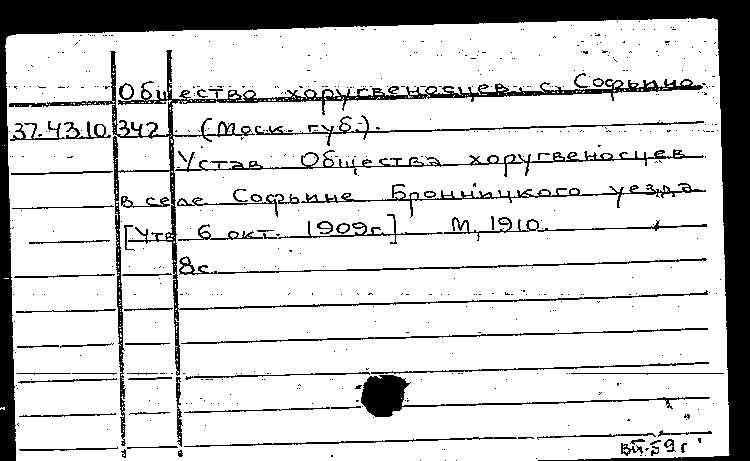 Общество хоругвеносцев. с. Софьино
37.43.10 342 (Моск. губ.).
Устав Общества хоругвеносцев
в селе Софьине Бронницкого уезда
[Утв 6 окт. 1909г.] М, 1910.
8с.